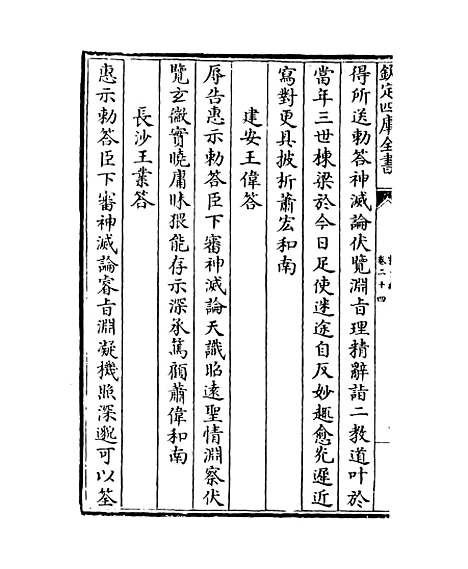 欽定四庫全書
卷二十四
得所送勅答神滅論伏覽淵旨理精辭詣二教道叶於
當年三世棟梁於今日足使迷途自反妙趣愈光遲近
寫對更具披折蕭宏和南
建安王偉答
辱告惠示勅答臣下審神滅論天識昭遠聖情淵察伏
覽玄微實曉庸昧猥能存示深承篤顧蕭偉和南
長沙王業答
惠示勅答臣下審神滅論睿旨淵凝機照深邈可以筌